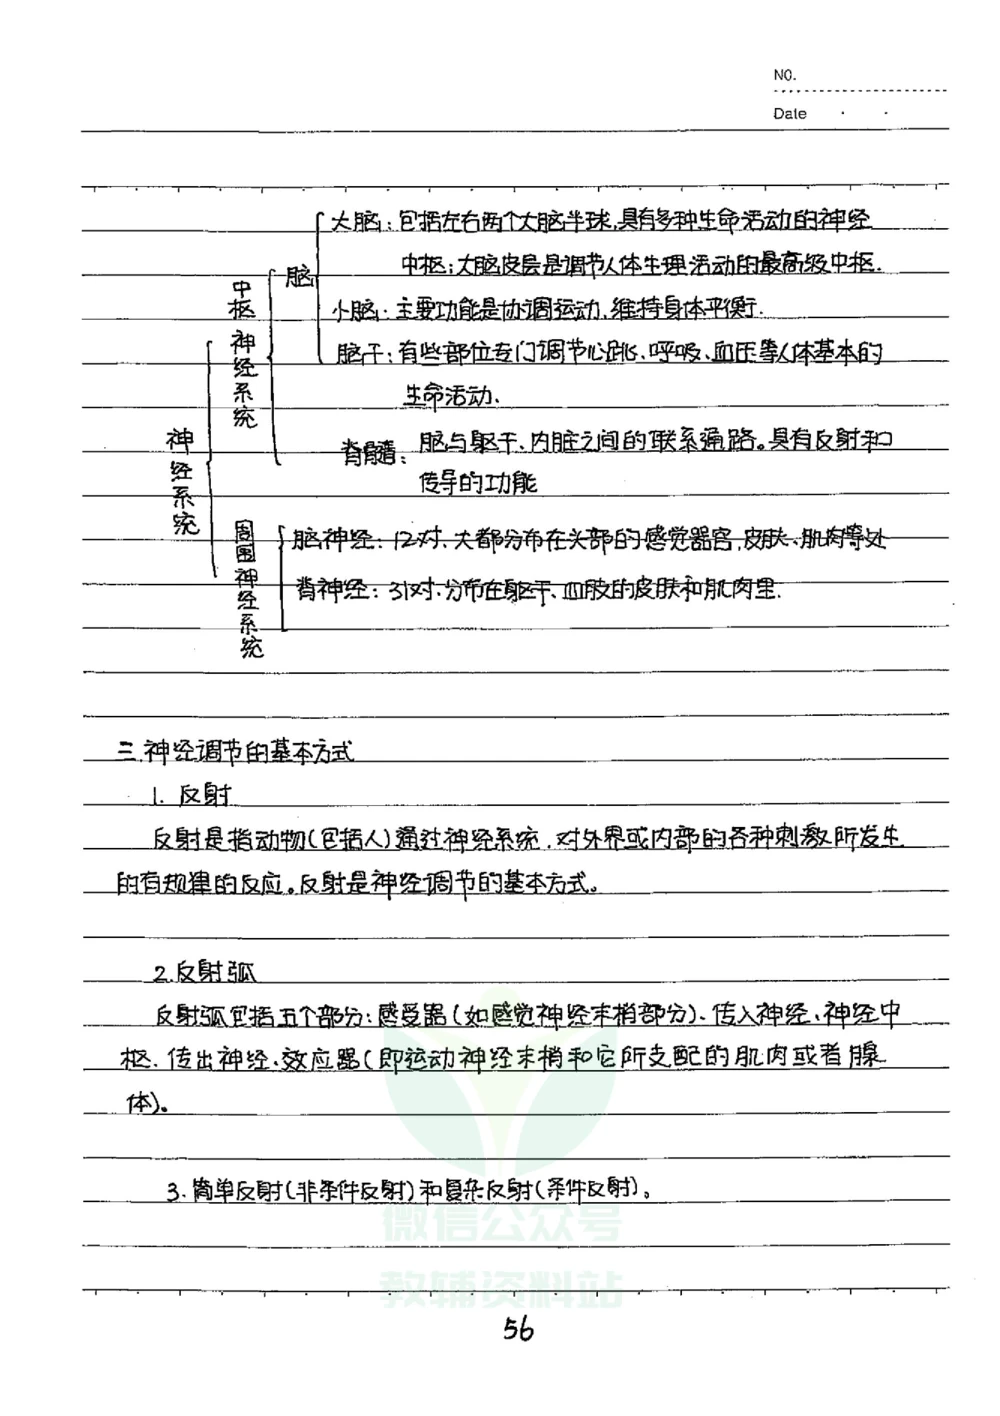 NO.
Date
大脑：包括左右两个大脑半球，具有多种生命活动的神经
中枢；大脑皮层是调节人体生理活动的最高级中枢.
脑
小脑：主要功能是协调运动，维持身体平衡.
脑干：有些部位专门调节心跳、呼吸、血压等人体基本的
生命活动.
中枢神经系统
神经系统
脊髓：脑与躯干、内脏之间的联系通路。具有反射和
传导的功能
周围神经系统
脑神经：12对、大都分布在头部的感觉器官，皮肤、肌肉等处
脊神经：31对、分布在躯干、四肢的皮肤和肌肉里.
三.神经调节的基本方式
1. 反射
反射是指动物(包括人)通过神经系统，对外界或内部的各种刺激所发生
的有规律的反应。反射是神经调节的基本方式。
2.反射弧
反射弧包括五个部分：感受器(如感觉神经末梢部分)、传入神经、神经中
枢、传出神经、效应器(即运动神经末梢和它所支配的肌肉或者腺
体)。
3.简单反射(非条件反射)和复杂反射(条件反射)。
微信公众号
教辅资料站
56